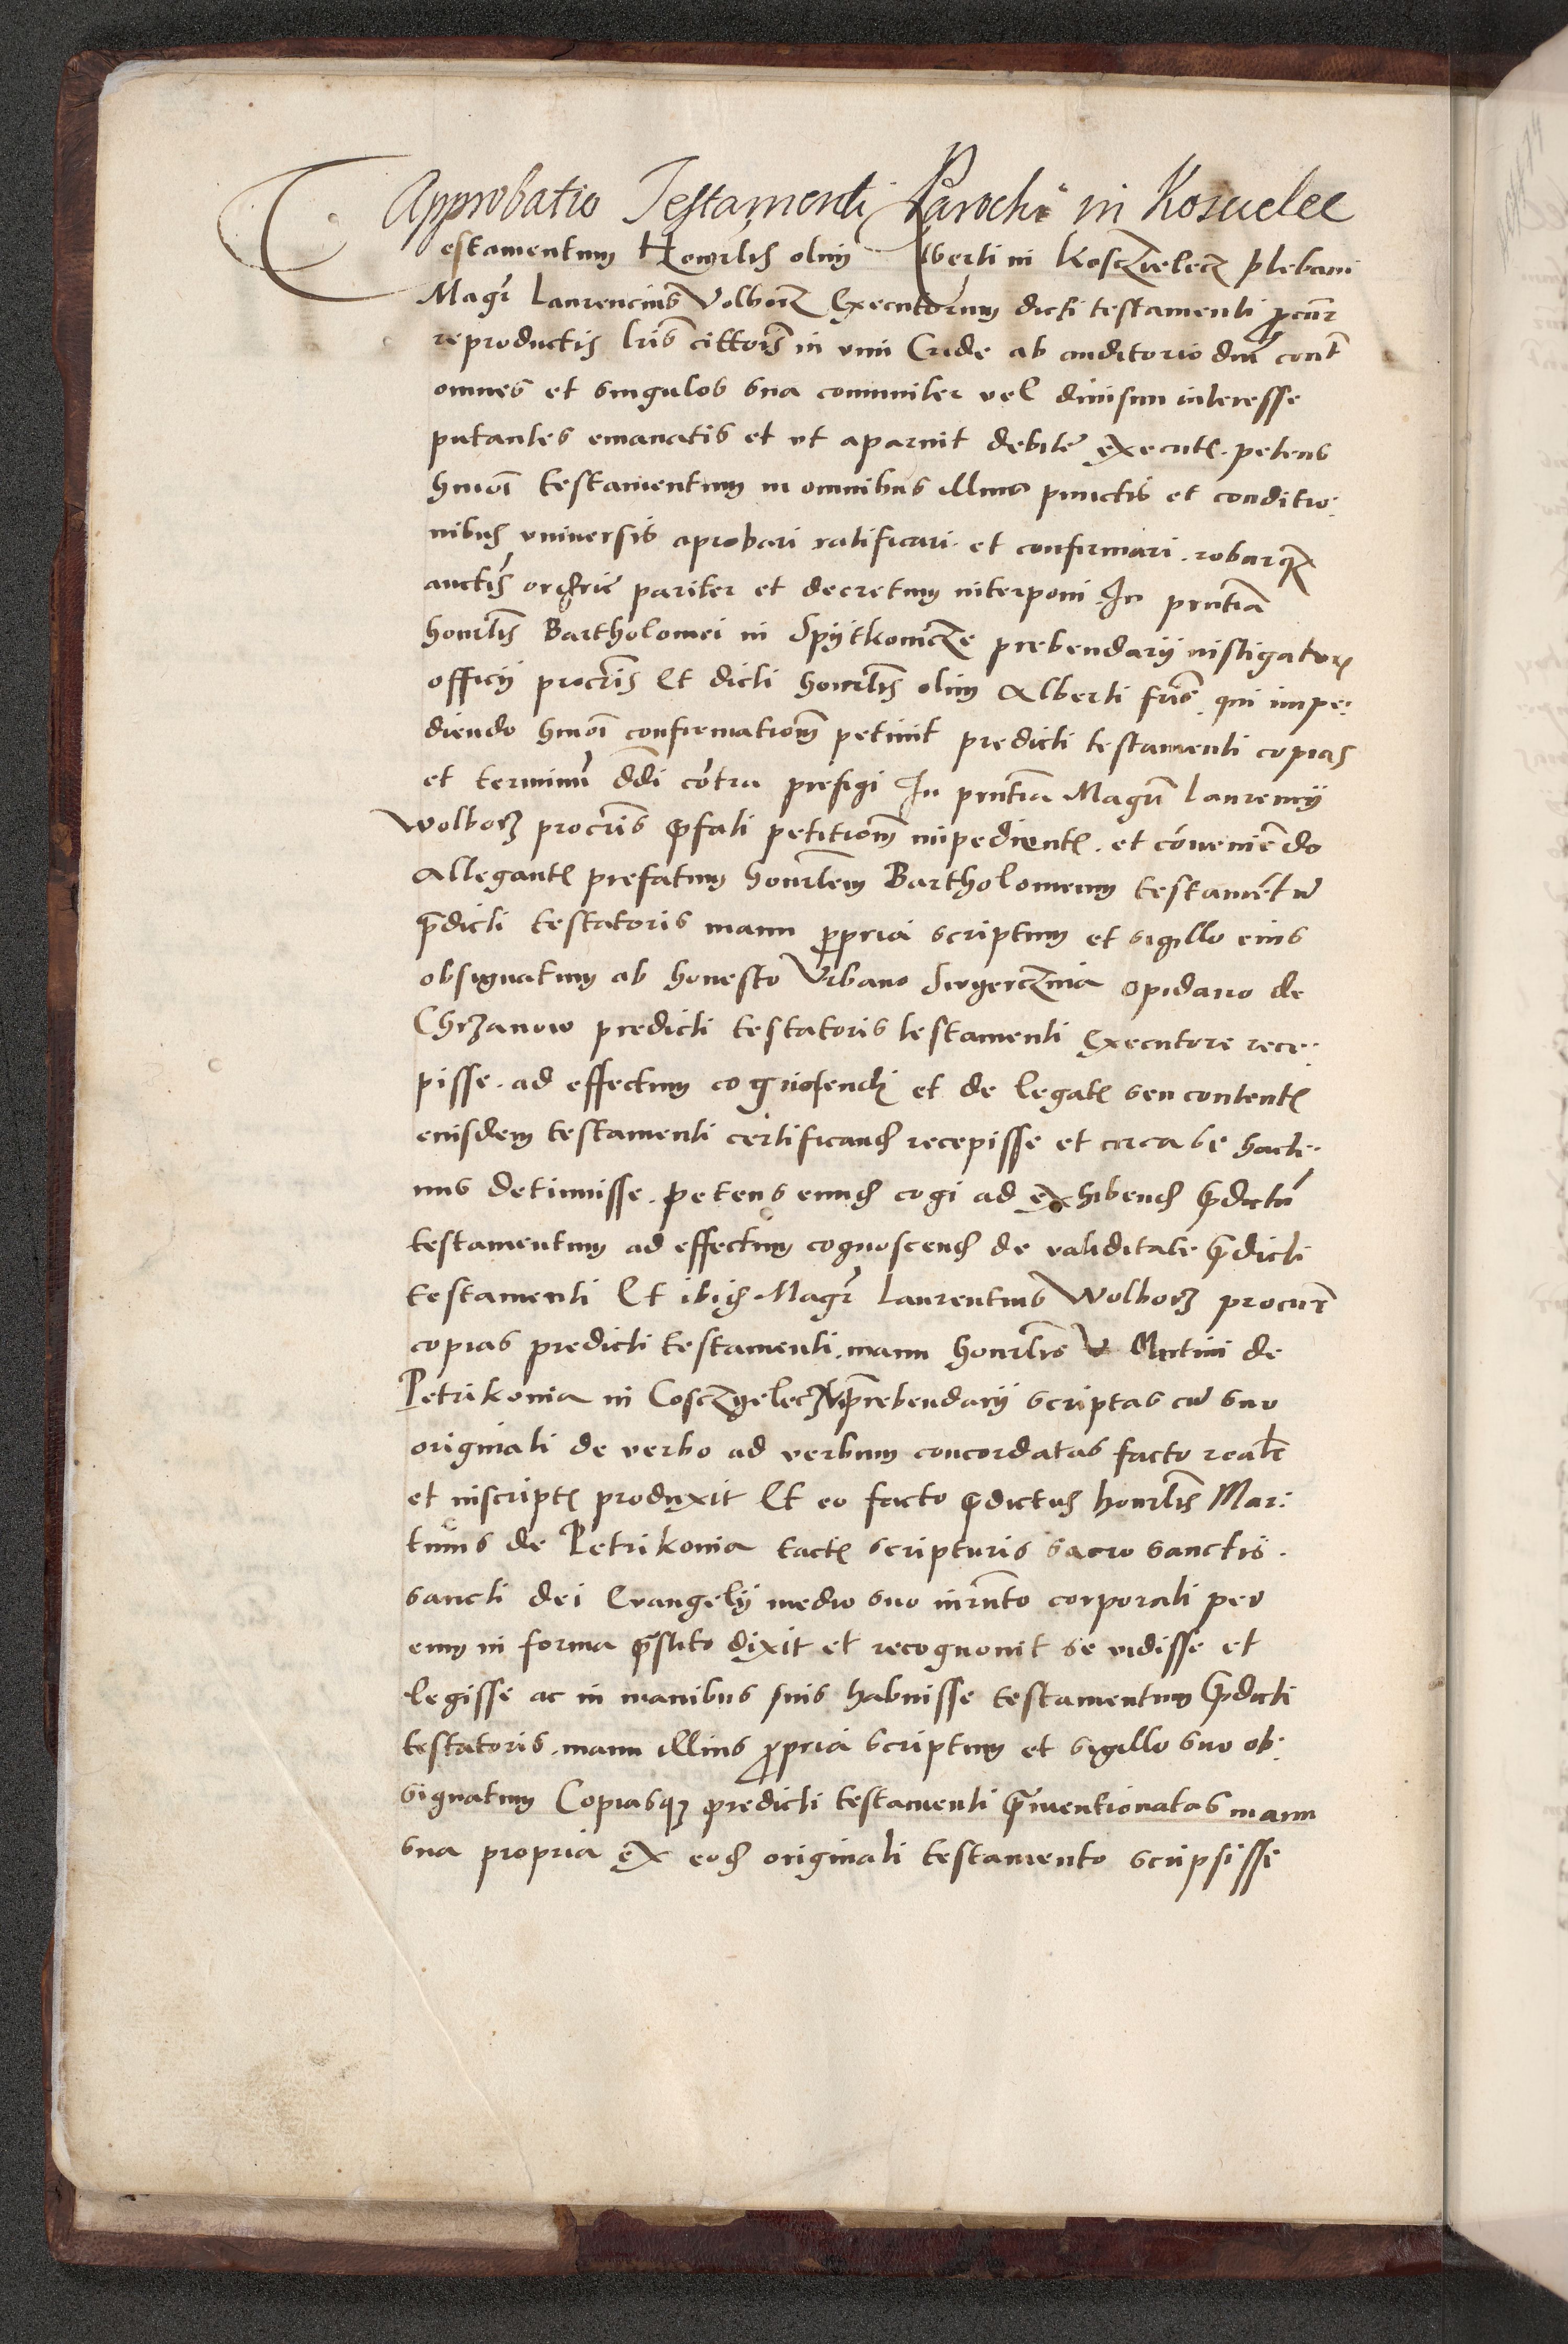 Approbatio Testamenti Parochi in Koscielec
Testamentum Honorlis olim Alberti in Kosczielecz plebani
Magr Laurencius Volborz Executorum dicti testamenti procur
reproductis lris cittoris in vim Cride ab auditorio dni cont
omnes et singulos sua comuniter vel divisim interesse
putantes emanatis et vt aparuit debite execut. petens
hmoi testamentum in omnibus illius punctis et conditio:
nibus vniversis aprobari ratificari et confirmari. robarq
auctis ordrie pariter et decretum interponi In prntia
honrlis Bartholomei in Spÿtkowicze prebendarÿ instigatoris
officÿ procris Et dicti honrlis olim Alberti fris. qui impe:
diendo hmoi confirmationem petivit predicti testamenti copias
et terminu ddi contra prefigi In prntia Magri Laurencÿ
Wolborz procris pfati petitionem impedient. et conveniendo
Allegant prefatum honrlem Bartholomeum testamentu
predicti testatoris manu propria scriptum et sigillo eius
obsignatum ab honesto Vrbano opidano de
Chrzanow predicti testatoris testamenti executore rece:
pisse. ad effectum cognoscendi et de legatis seu contentis
eiusdem testamenti certificand recepisse et circa se hacte:
nus detinuisse. petens eund cogi ad exhibend predictu
testamentum ad effectum cognoscend de validitate predicti
testamenti Et ibid Magr Laurentius Wolborz procur
copias predicti testamenti. manu honrlis Martini de
Petrikovia in Cosczyelecz prebendarÿ scriptas cu suo
originali de verbo ad verbum concordatas facto realr
et inscriptis produxit Et eo facto predictus honrlis Mar:
tinus de Petrikovia tactis scripturis sacro sanctis.
sancti dei Evangelÿ medio suo iurnto corporali per
eum in forma prestito dixit et recognovit se vidisse et
legisse ac in manibus suis habuisse testamentum predicti
testatoris. manu illius propria scriptum et sigillo suo ob:
signatum Copiasq predicti testamenti prementionatas manu
sua propria ex eod originali testamento scripsisse